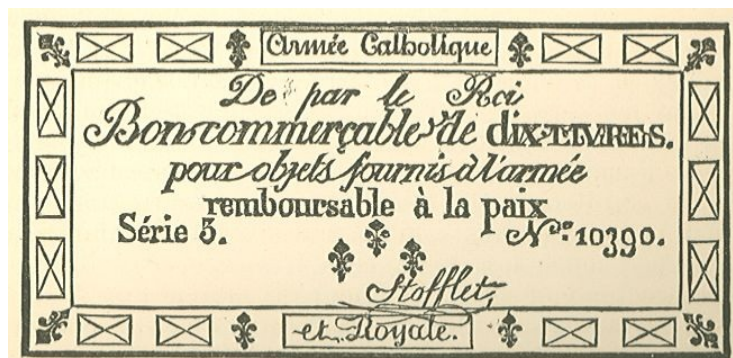 Armée Catholique
De par le Roi
Bon commerçable de DIX-LIVRES.
pour objets fournis à l'armée
remboursable à la paix
Série 5. Nº. 10390.
Stofflet,
et Royale.